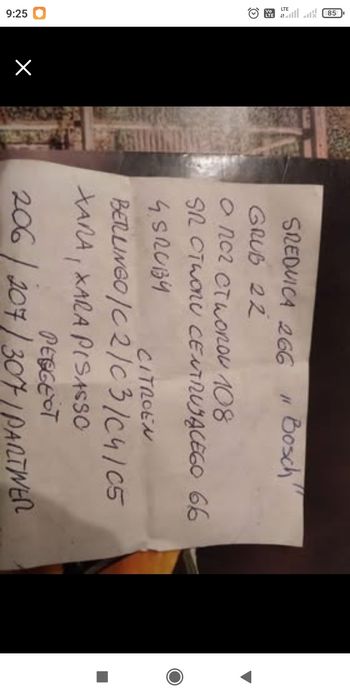 9:25
LTE
85
SREDNICA 266 "Bosch"
GRUB 22
O ROZ OTWOROW 108
SR OTWORU CENTRUJĄCEGO 66
4 SRUBY
CITROEN
BERLINGO / C2 / C3 / C4 / C5
XARA, XARA PISASSO
PEGEOT
206 / 207 / 307 / PARTNER